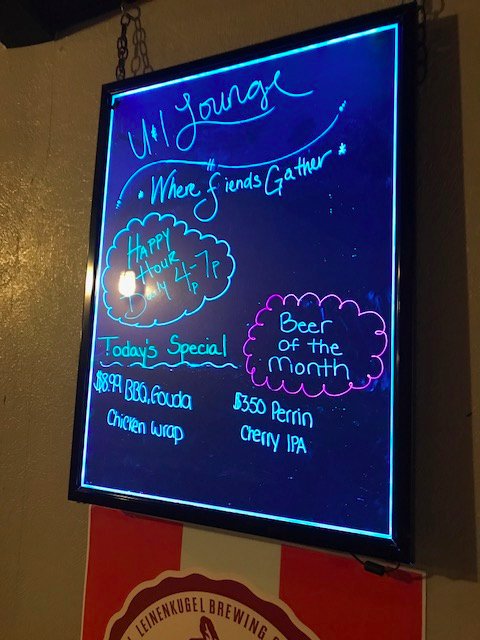 U&I Lounge
"Where fiends Gather"
Happy
Hour
Daily 4p-7p
Today's Special
$8.99 BBQ, Gouda
Chicken Wrap
Beer
of the
Month
$350 Perrin
Cherry IPA
LEINENKUGEL BREWING